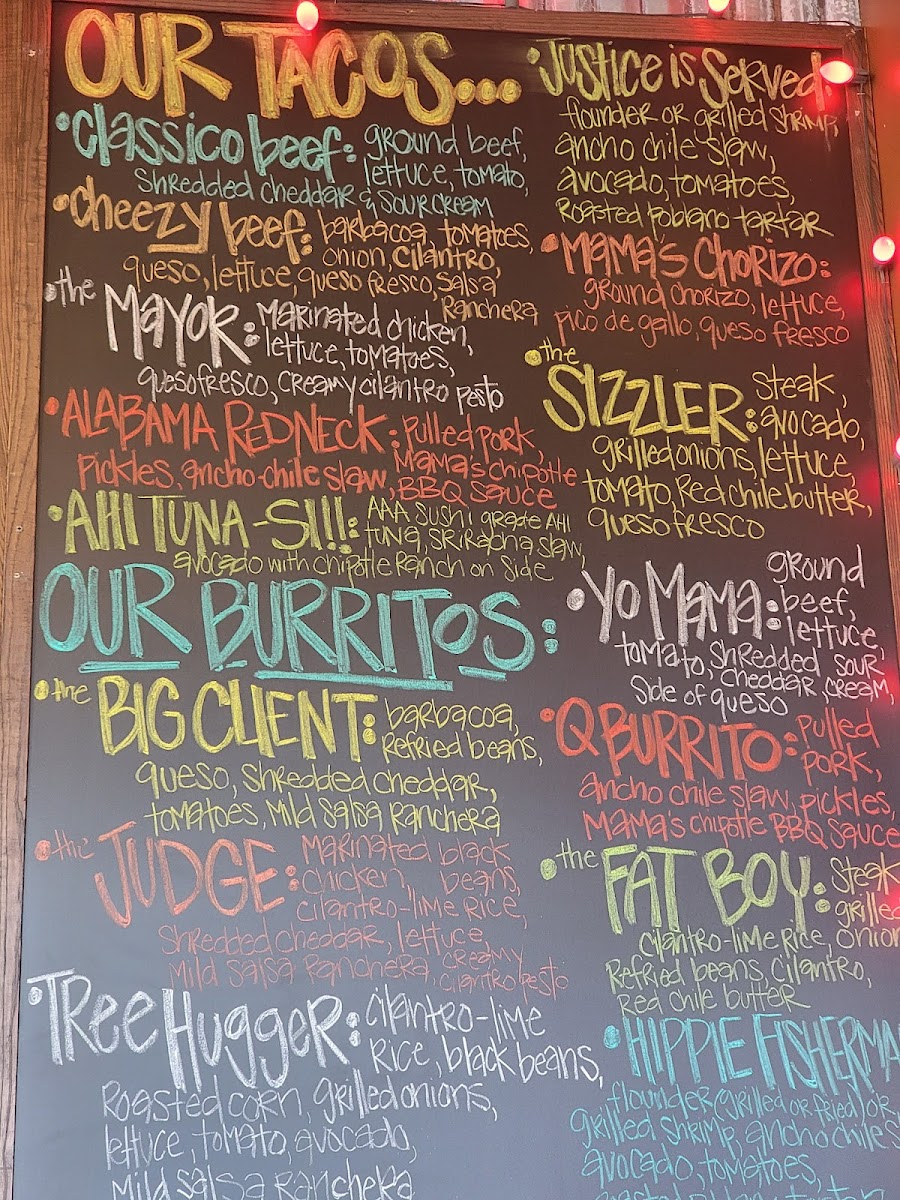 OUR TACOS...
•Classico beef: ground beef,
lettuce, tomato,
shredded cheddar & sour cream
•cheezy beef: barbacoa, tomatoes,
onion, cilantro,
queso, lettuce, queso fresco, salsa
Ranchera
•the MAYOR: Marinated chicken,
lettuce, tomatoes,
queso fresco, creamy cilantro pesto
•ALABAMA REDNECK: Pulled pork,
Pickles, ancho-chile slaw, Mama's chipotle
BBQ sauce
•AHI TUNA-SI!!: AAA sushi grade AHI
tuna, sriracha slaw,
avocado with chipotle Ranch on side
•Justice is Served:
flounder or grilled shrimp,
ancho chile slaw,
avocado, tomatoes,
Roasted poblano tartar
•MAMA'S CHORIZO:
ground chorizo, lettuce,
pico de gallo, queso fresco
•the SIZZLER: steak,
avocado,
grilled onions, lettuce,
tomato, Red chile butter,
queso fresco
OUR BURRITOS:
•the BIG CLIENT: barbacoa,
Refried beans,
queso, shredded cheddar,
tomatoes, Mild salsa Ranchera
•the JUDGE: Marinated black
chicken, beans,
cilantro-lime Rice,
shredded cheddar, lettuce,
Mild salsa Ranchera, creamy
cilantro pesto
•Tree Hugger: cilantro-lime
Rice, black beans,
Roasted corn, grilled onions,
lettuce, tomato, avocado,
Mild salsa Ranchera
•YO MAMA: ground
beef,
lettuce,
tomato, shredded sour
cheddar, cream,
side of queso
•Q BURRITO: Pulled
pork,
ancho chile slaw, pickles,
Mama's chipotle BBQ sauce
•the FAT BOY: Steak
grilled
cilantro-lime Rice, onion
Refried beans, cilantro,
Red chile butter
•HIPPIE FISHERMA
flounder (grilled or fried) or
grilled shrimp, ancho chile s
avocado, tomatoes,